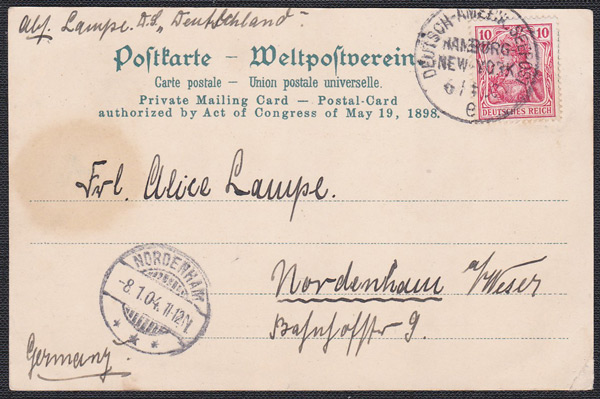 Abs. Lampe. D.S. „Deutschland".
Postkarte – Weltpostverein
Carte postale – Union postale universelle.
Private Mailing Card – Postal-Card
authorized by Act of Congress of May 19, 1898.
DEUTSCH-AMERIK. SEEPOST
HAMBURG-
NEW-YORK
6/1
e
10 10
DEUTSCHES REICH
Frl. Alice Lampe.
Nordenham a/Weser
Bahnhofstr 9.
NORDENHAM
-8.1.04.11-12V
Germany.